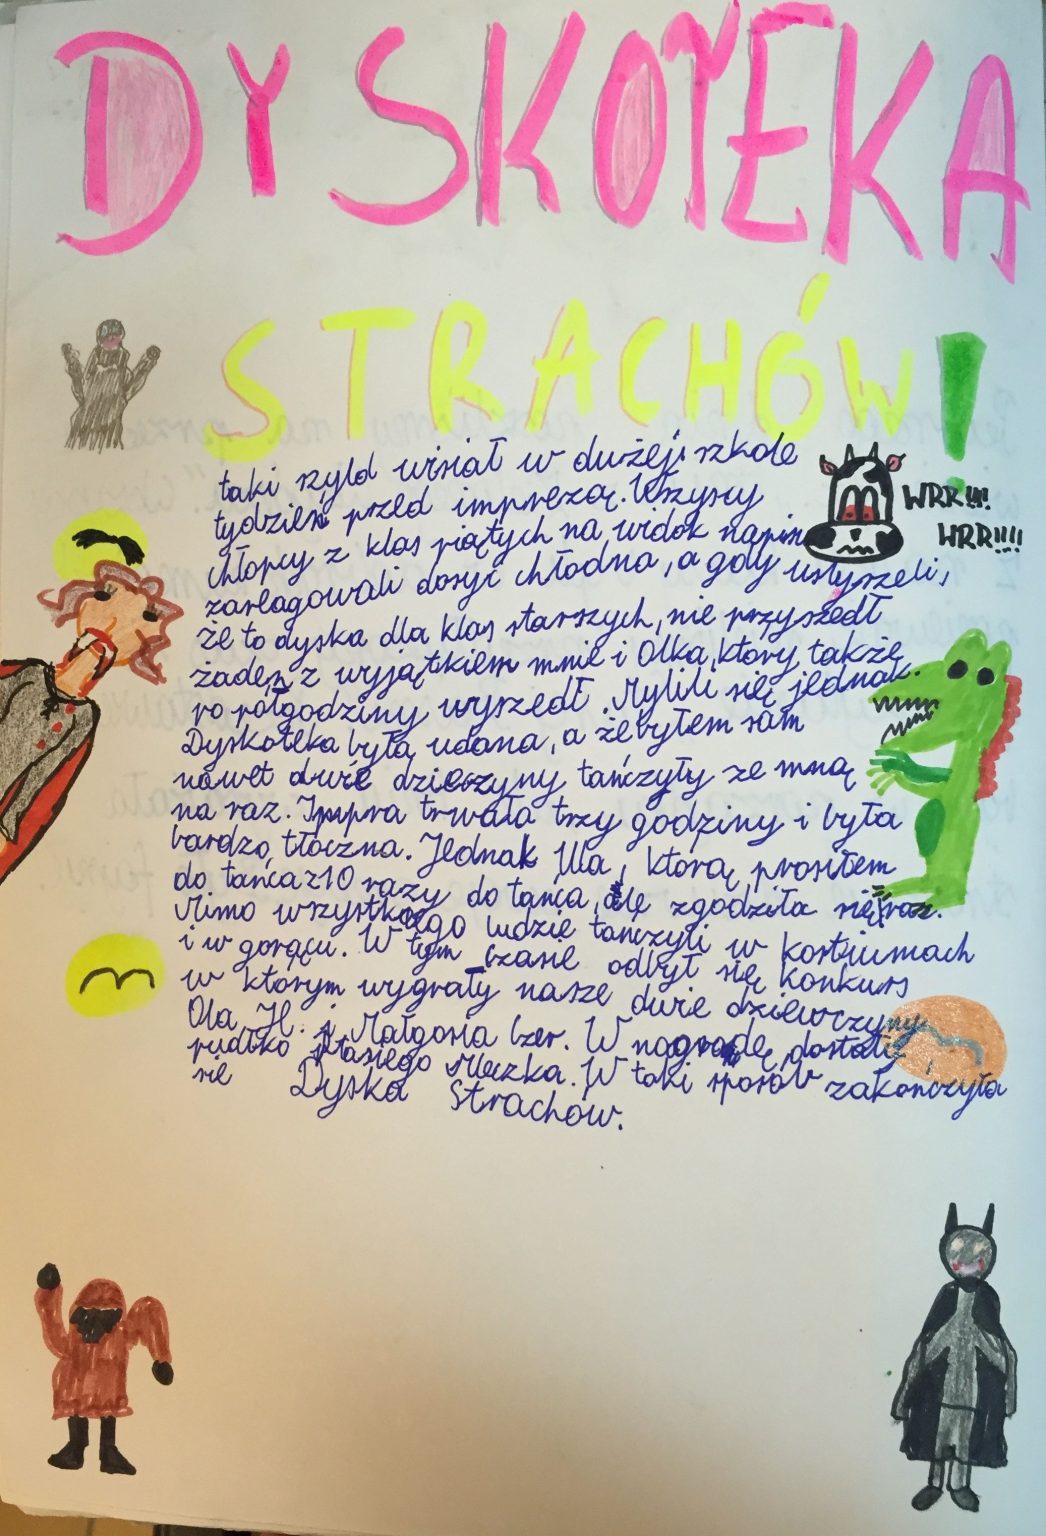 DYSKOTEKA
STRACHÓW!
taki szyld wisiał w dużej szkole
tydzień przed imprezą. Wszyscy
WRR!!!
WRR!!!!
chłopcy z klas piątych na widok napisu
zareagowali dosyć chłodna, a gdy usłyszeli,
że to dyska dla klas starszych, nie przyszedł
żaden z wyjątkiem mnie i Olka, który także
po półgodziny wyszedł. Mylili się jednak.
Dyskoteka była udana, a że byłem sam
nawet dwie dziewczyny tańczyły ze mną
na raz. Impra trwała trzy godziny i była
bardzo tłoczna. Jednak Ula, którą prosiłem
do tańca z 10 razy do tańca, nie zgodziła się raz.
Mimo wszystkiego ludzie tańczyli w kostjumach
i w gorącu. W tym czasie odbył się konkurs
w którym wygrały nasze dwie dziewczyny
Ola H. i Małgosia Czer. W nagrodę dostały
pudłko Ptasiego Mleczka. W taki sposób zakończyła
się Dyska Strachów.